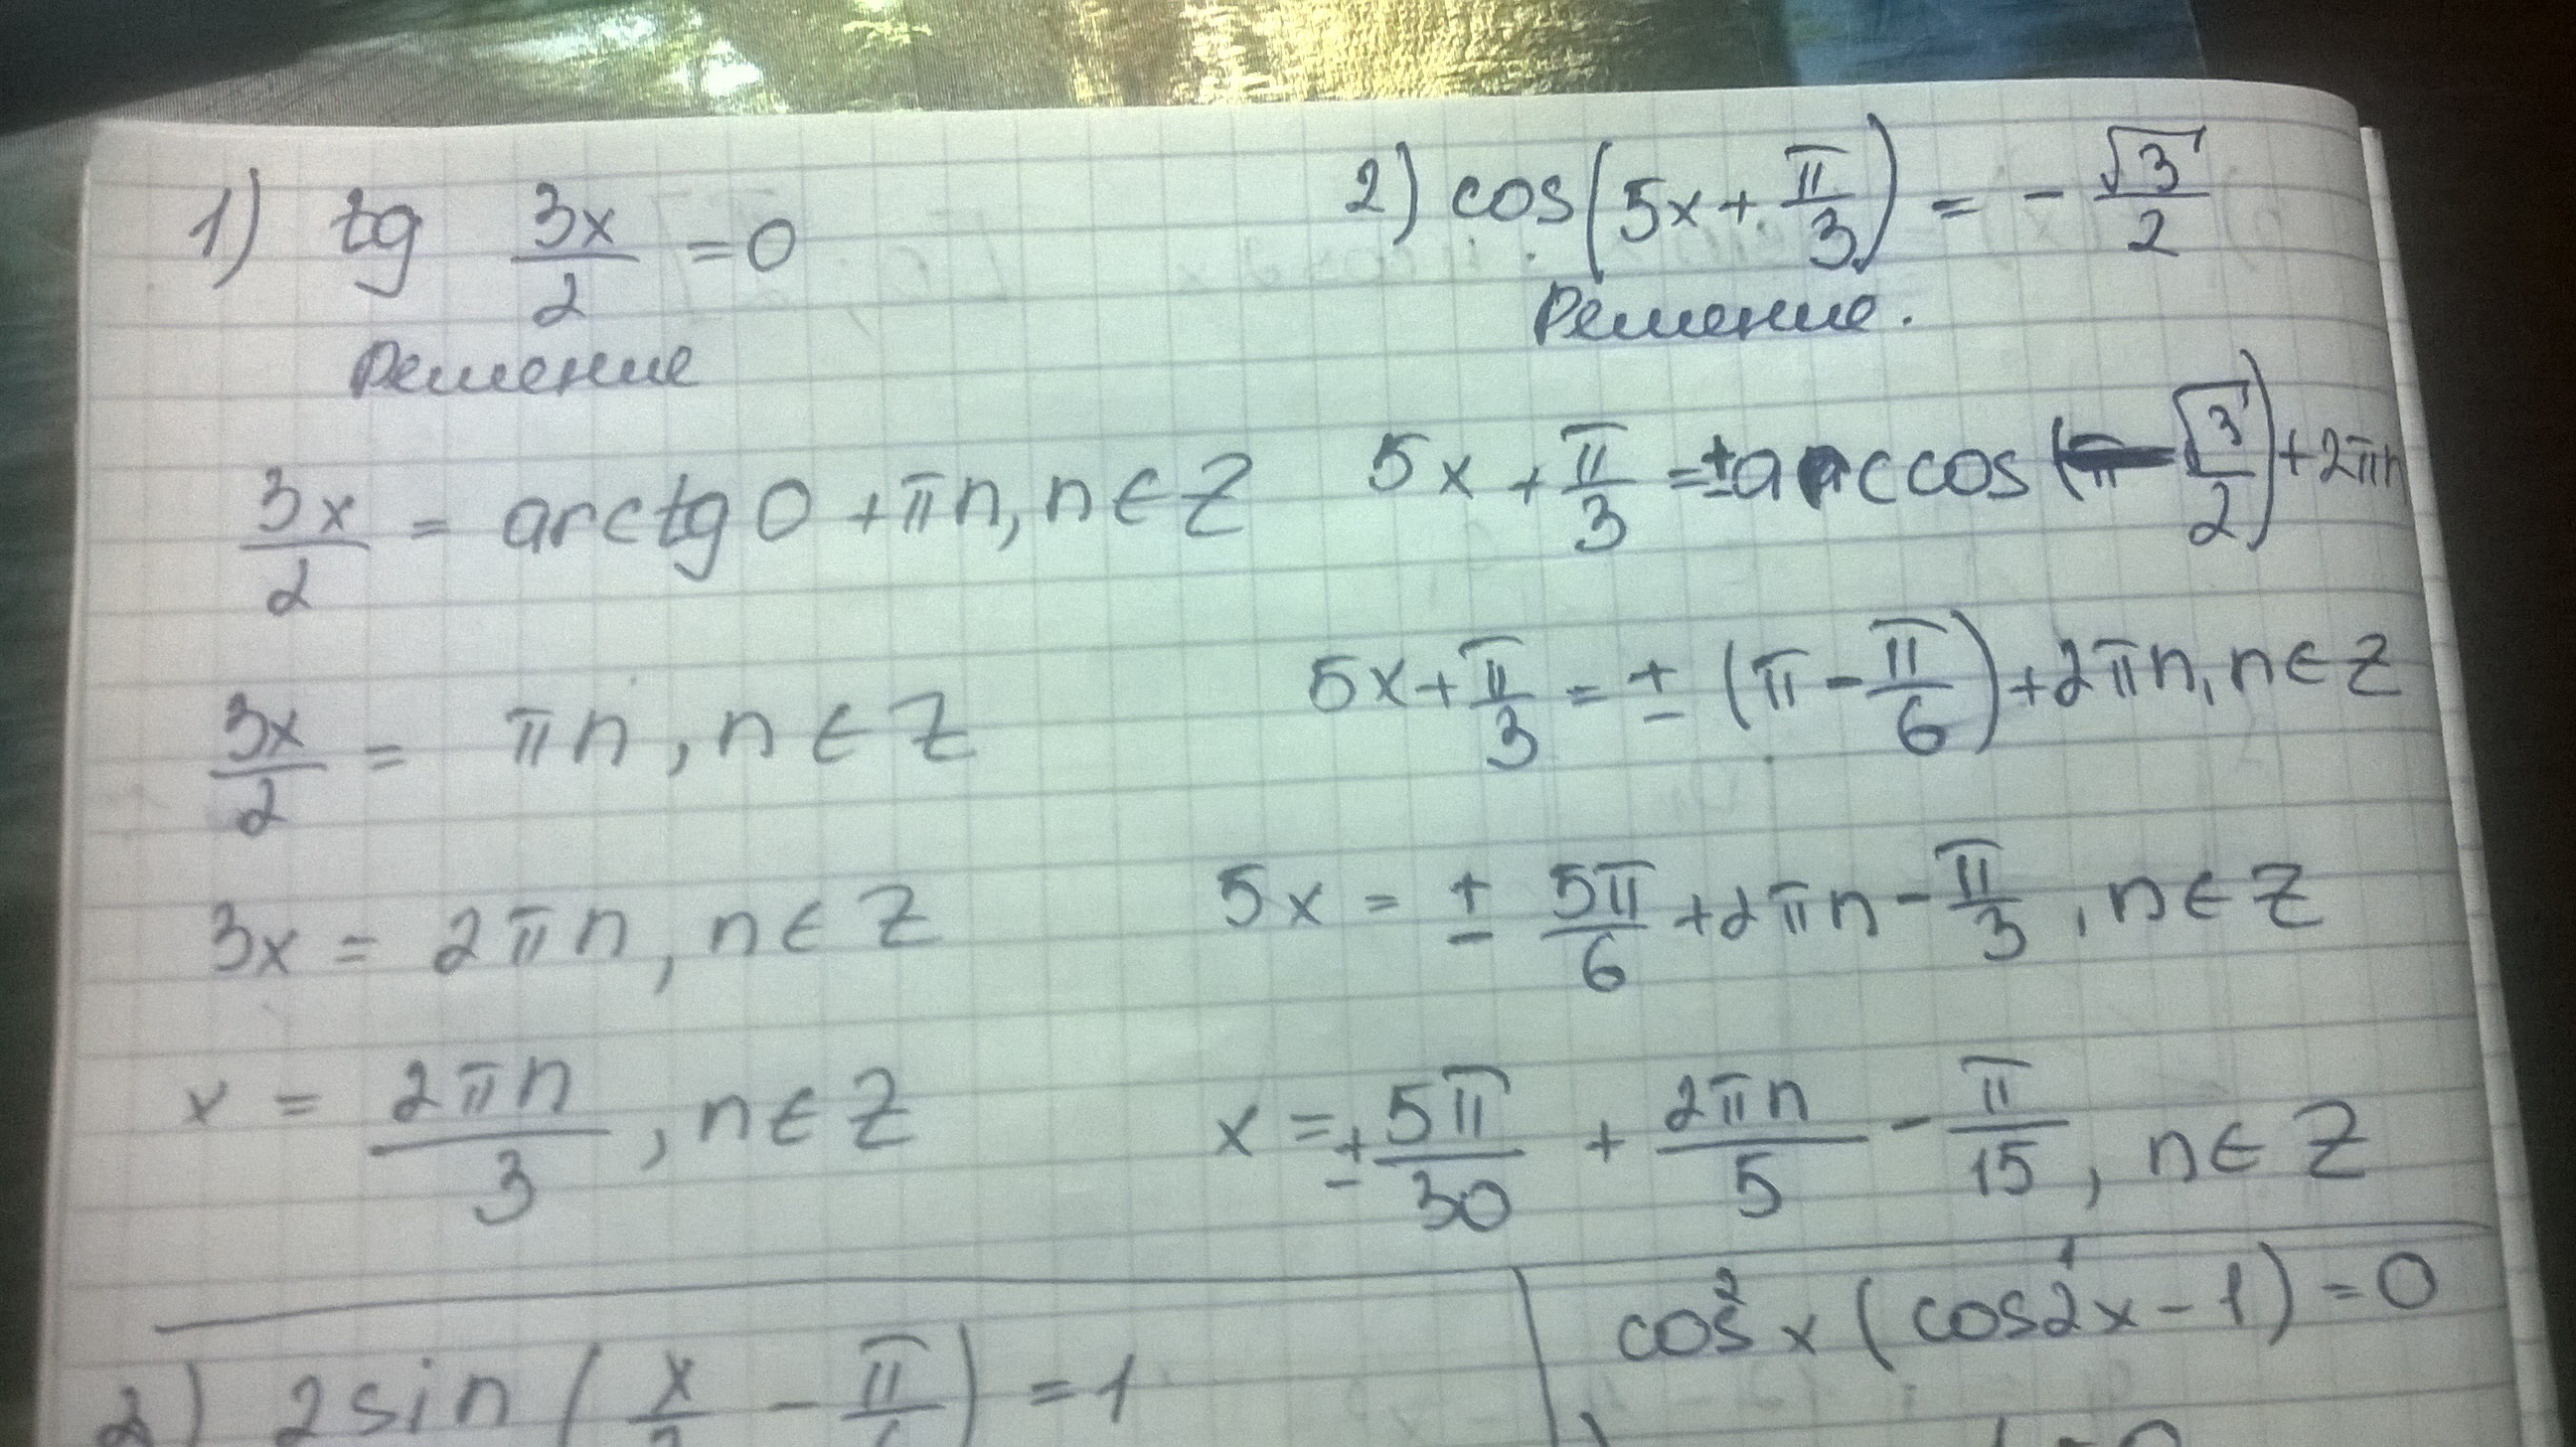 1) tg 3x/2 = 0
Решение
3x/2 = arctg 0 + πn, n ∈ Z
3x/2 = πn, n ∈ Z
3x = 2πn, n ∈ Z
x = 2πn/3, n ∈ Z
2) cos(5x + π/3) = - √3/2
Решение.
5x + π/3 = ± arccos(-√3/2) + 2πn
5x + π/3 = ± (π - π/6) + 2πn, n ∈ Z
5x = ± 5π/6 + 2πn - π/3, n ∈ Z
x = ± 5π/30 + 2πn/5 - π/15, n ∈ Z
2) 2sin(x/ - π/ ) = 1
cos²x (cos2x - 1) = 0